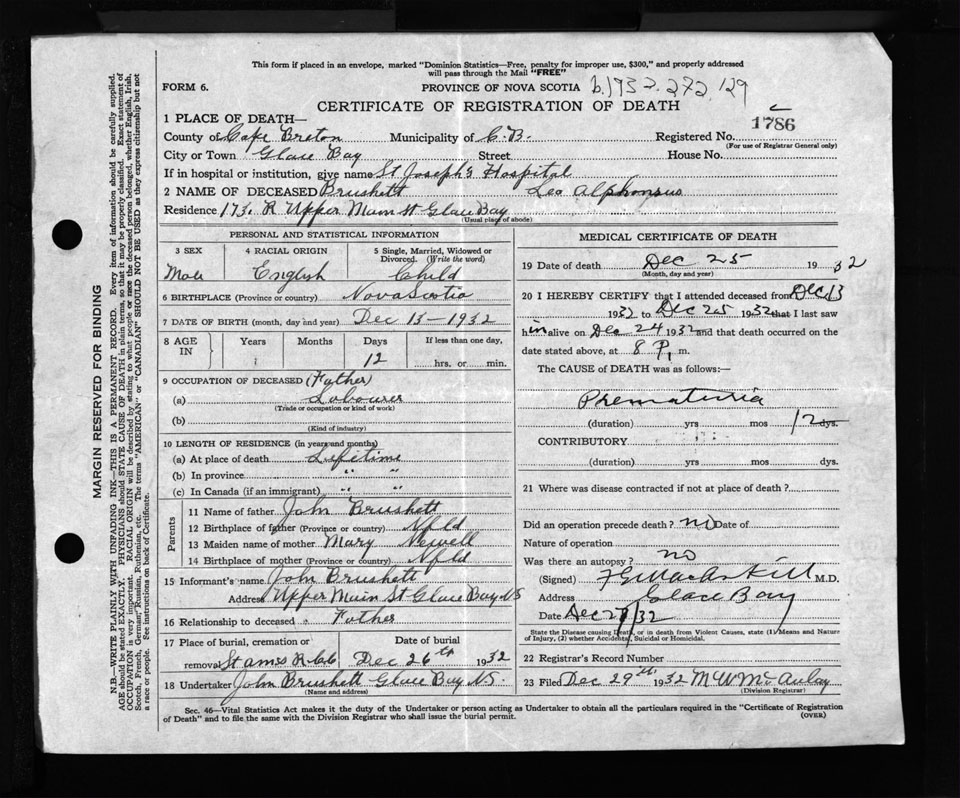 This form if placed in an envelope, marked "Dominion Statistics—Free, penalty for improper use, $300," and properly addressed
will pass through the Mail "FREE"
FORM 6.
PROVINCE OF NOVA SCOTIA b.1932.272.129
CERTIFICATE OF REGISTRATION OF DEATH
1786
1 PLACE OF DEATH—
County of Cape Breton Municipality of C.B. Registered No.
(For use of Registrar General only)
City or Town Glace Bay Street House No.
If in hospital or institution, give name St Joseph's Hospital
2 NAME OF DECEASED Brushett Leo Alphonsus
Residence 173. R Upper Main St Glace Bay
(Usual place of abode)
PERSONAL AND STATISTICAL INFORMATION
3 SEX 4 RACIAL ORIGIN 5 Single, Married, Widowed or
Divorced. (Write the word)
Male English Child
6 BIRTHPLACE (Province or country) Nova Scotia
7 DATE OF BIRTH (month, day and year) Dec 13—1932
8 AGE IN Years Months Days If less than one day,
12 hrs. or min.
9 OCCUPATION OF DECEASED (Father)
(a) Labourer
(Trade or occupation or kind of work)
(b)
(Kind of industry)
10 LENGTH OF RESIDENCE (in years and months)
(a) At place of death Lifetime
(b) In province " "
(c) In Canada (if an immigrant) " "
Parents
11 Name of father John Brushett
12 Birthplace of father (Province or country) Nfld
13 Maiden name of mother Mary Newell
14 Birthplace of mother (Province or country) Nfld
15 Informant's name John Brushett
Address Upper Main St Glace Bay NS
16 Relationship to deceased Father
17 Place of burial, cremation or Date of burial
removal St R.C. Dec 26th 1932
18 Undertaker John Brushett Glace Bay N.S.
(Name and address)
MEDICAL CERTIFICATE OF DEATH
19 Date of death Dec 25 1932
(Month, day and year)
20 I HEREBY CERTIFY that I attended deceased from Dec 13
1932 to Dec 25 1932 that I last saw
him alive on Dec 24 1932 and that death occurred on the
date stated above, at 8 P. m.
The CAUSE of DEATH was as follows:—
Prematuria
(duration) yrs mos 12 dys.
CONTRIBUTORY
(duration) yrs mos dys.
21 Where was disease contracted if not at place of death?
Did an operation precede death? no Date of
Nature of operation
Was there an autopsy? no
(Signed) M.D.
Address Glace Bay
Date Dec 27/32
State the Disease causing Death, or in death from Violent Causes, state (1) Means and Nature
of Injury, (2) whether Accidental, Suicidal or Homicidal.
22 Registrar's Record Number
23 Filed Dec 29th 1932 M W McAulay
(Division Registrar)
Sec. 46—Vital Statistics Act makes it the duty of the Undertaker or person acting as Undertaker to obtain all the particulars required in the "Certificate of Registration
of Death" and to file the same with the Division Registrar who shall issue the burial permit. (OVER)
MARGIN RESERVED FOR BINDING
N.B.—WRITE PLAINLY WITH UNFADING INK—THIS IS A PERMANENT RECORD. Every item of information should be carefully supplied.
AGE should be stated EXACTLY. PHYSICIANS should STATE CAUSE OF DEATH in plain terms, so that it may be properly classified. Exact statement of
OCCUPATION is very important. RACIAL ORIGIN will be described by stating to what people or race the deceased person belonged, whether English, Irish,
Scotch, French, German, Russian, Ruthenian, etc. The terms "AMERICAN" or "CANADIAN" SHOULD NOT BE USED as they express citizenship but not
a race or people. See instructions on back of Certificate.